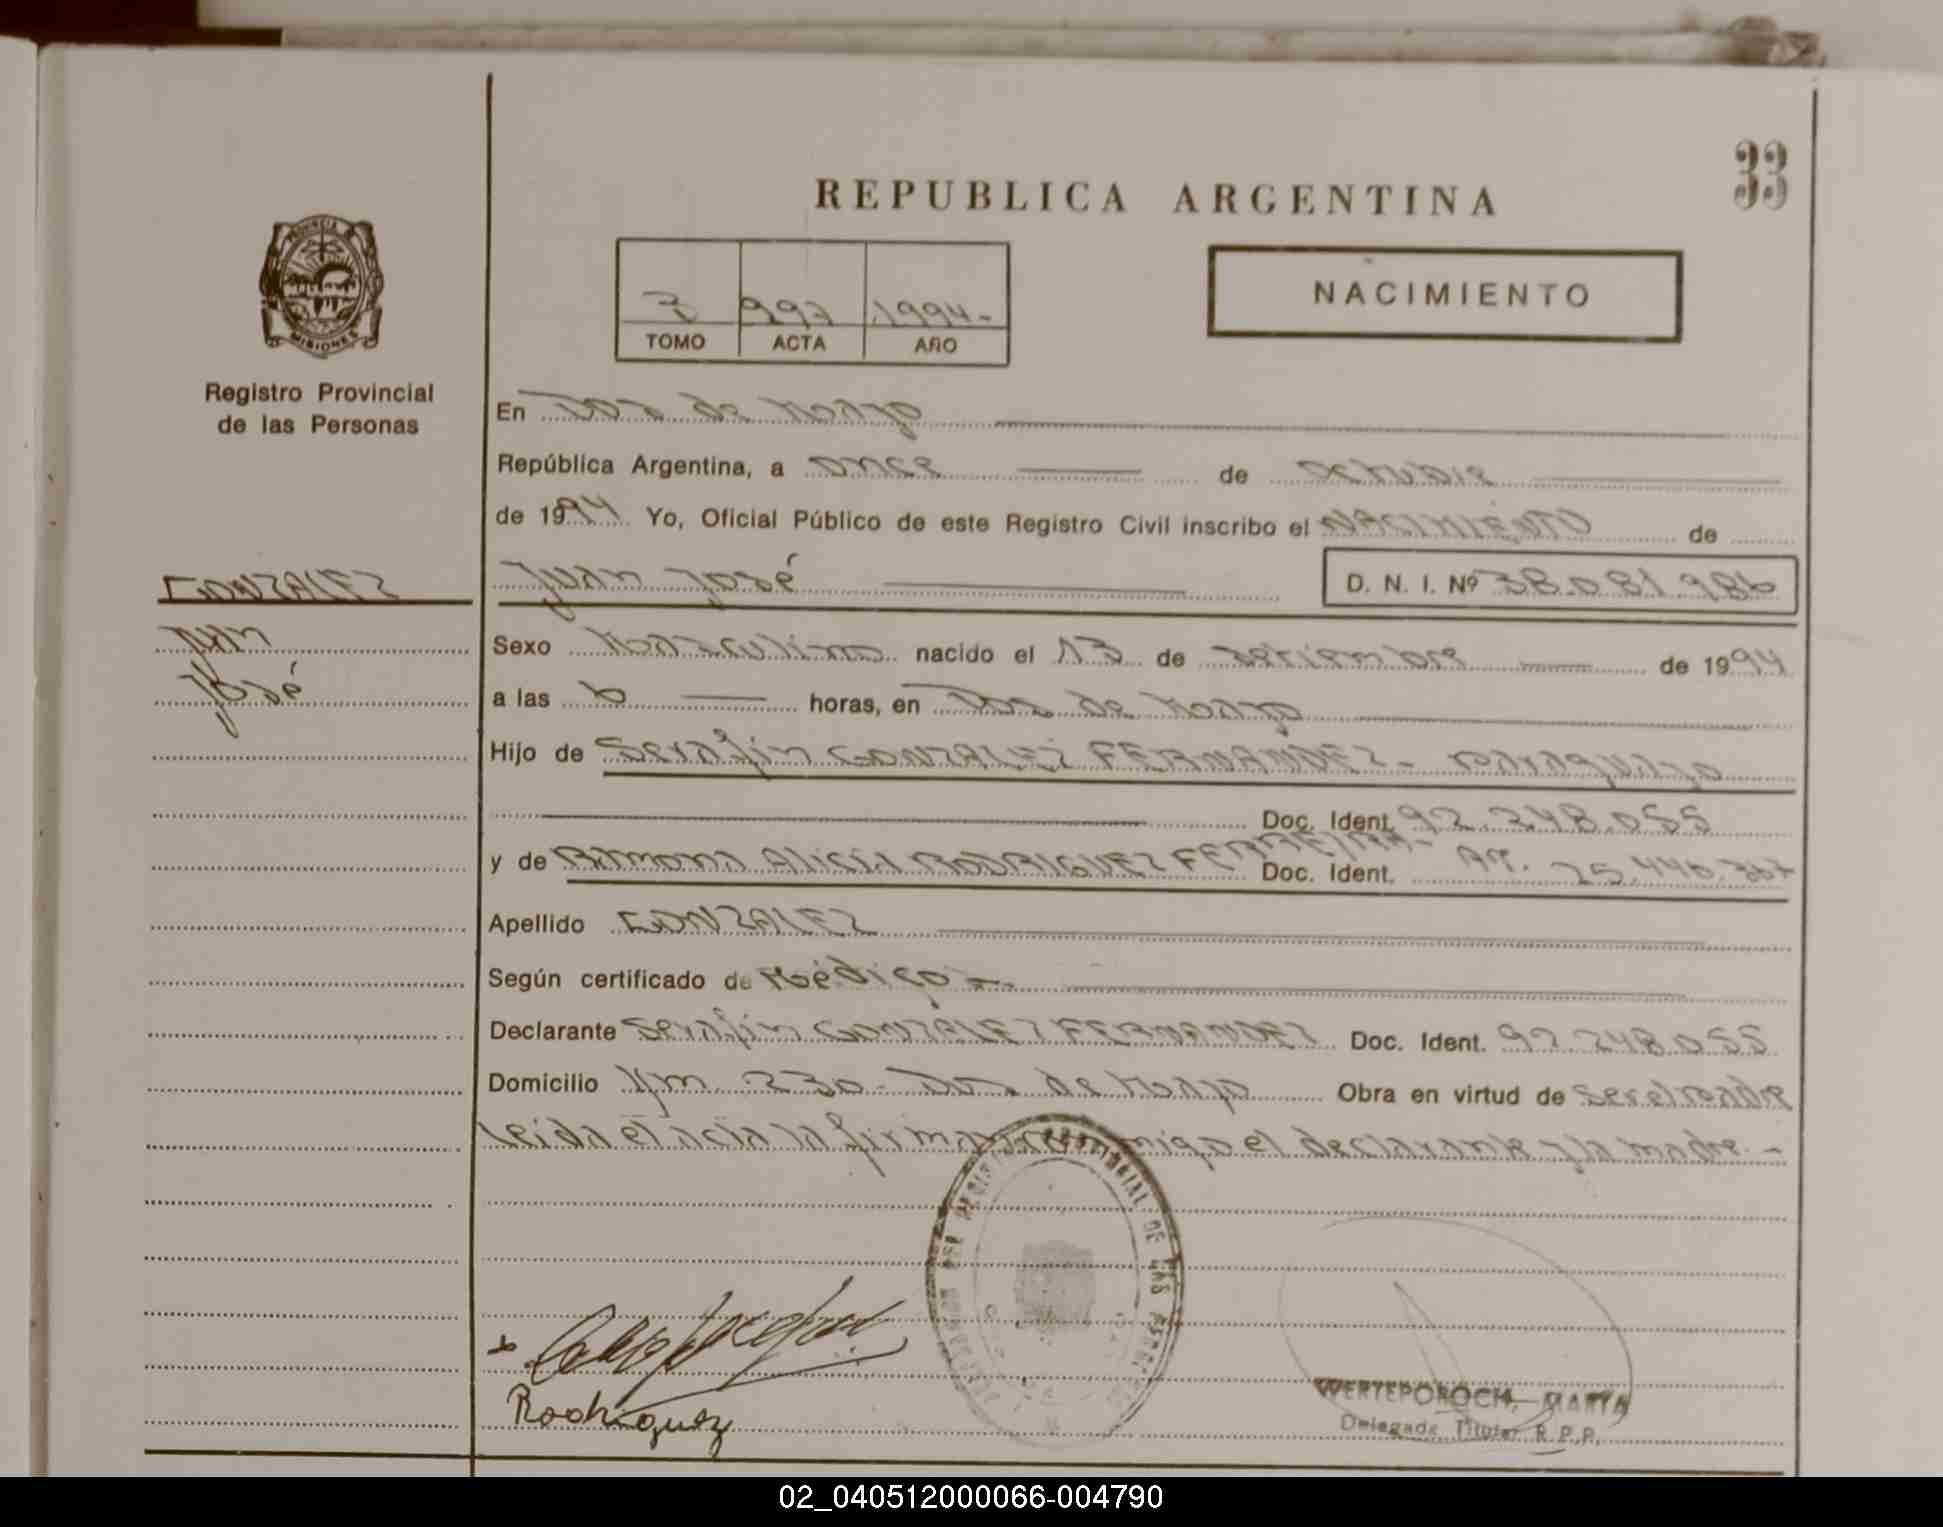 33
REPUBLICA ARGENTINA
NACIMIENTO
3 997 1994.-
TOMO ACTA AÑO
PROVINCIA DE MISIONES
Registro Provincial
de las Personas
En Dos de Mayo
República Argentina, a once de octubre
de 1994 Yo, Oficial Público de este Registro Civil inscribo el NACIMIENTO de
GONZALEZ
Juan José D. N. I. Nº 38.081.986
Juan
José
Sexo Masculino nacido el 13 de setiembre de 1994
a las 6 horas, en Dos de Mayo
Hijo de Serafín GONZALEZ FERNANDEZ - paraguayo
Doc. Ident. 92.248.055
y de Ramona Alicia RODRIGUEZ FERREIRA - Ar. Doc. Ident. 25.446.367
Apellido GONZALEZ
Según certificado de Médico -.
Declarante Serafín GONZALEZ FERNANDEZ Doc. Ident. 92.248.055
Domicilio Km 230 - Dos de Mayo Obra en virtud de ser el padre
Leída el acta la firman conmigo el declarante y la madre. -
PROVINCIAL DE LAS
Rodriguez
WERTEPOROCH, MARTA
Delegada Titular R.P.P.
02_040512000066-004790